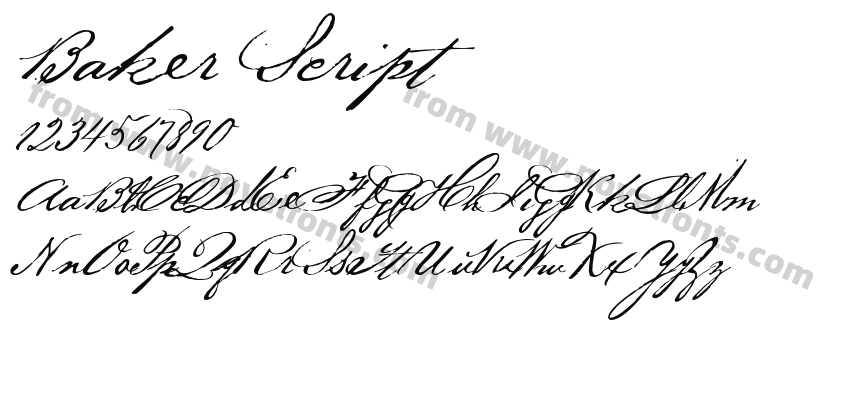 Baker Script
1234567890
AaBbCcDdEeFfGgHhIiJjKkLlMm
NnOoPpQqRrSsTtUuVvWwXxYyZz
from www.novelfonts.com
from www.novelfonts.com